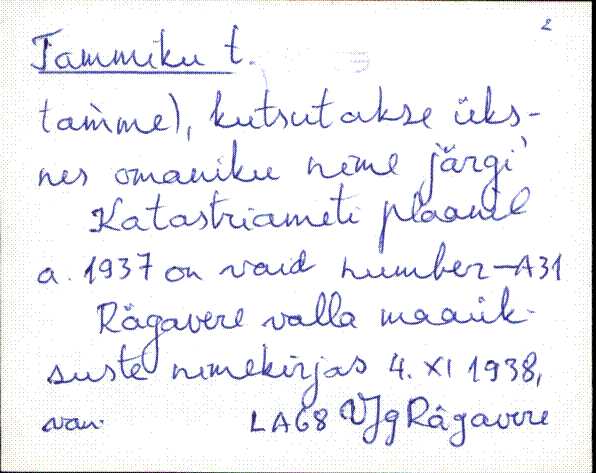 2
Tammiku t.
tam̀me), kutsutakse üks-
nes omaniku nime järgi
Katastriameti plaanil
a. 1937 on vaid number – A31
Rägavere valla maaük-
suste nimekirjas 4. XI 1938,
van.
LA68 VJg Rägavere